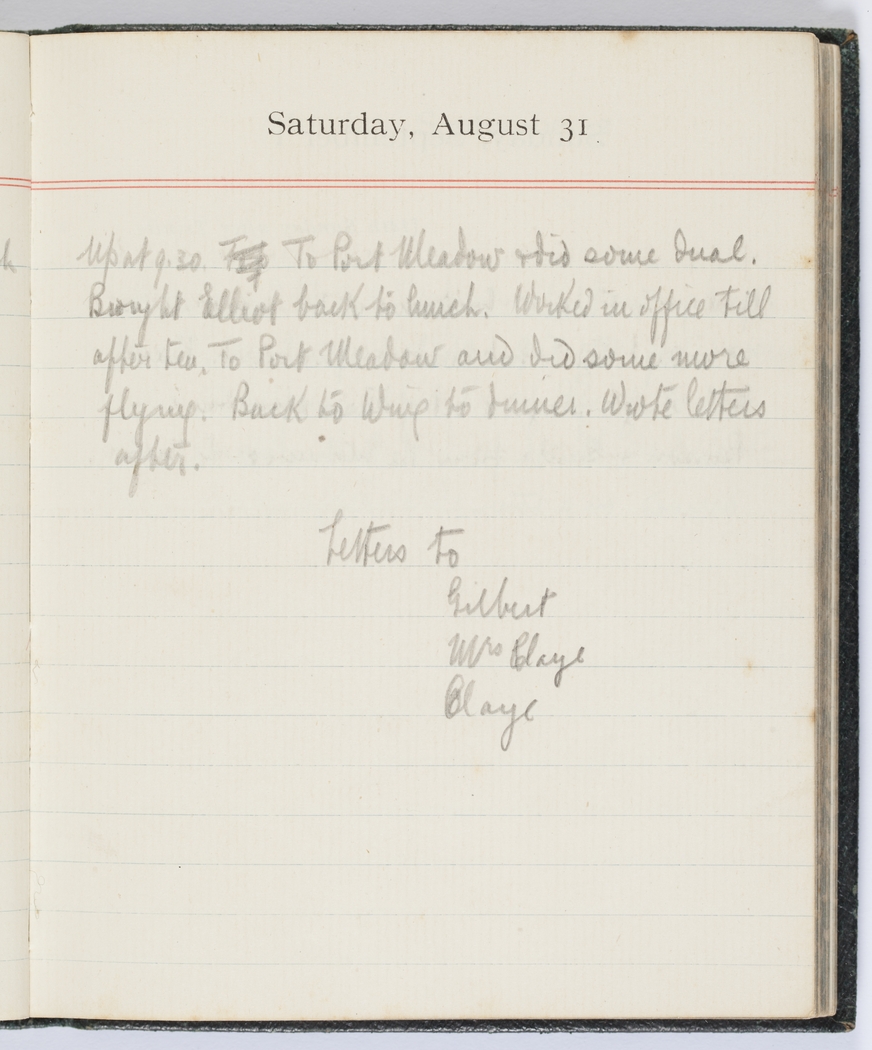 Saturday, August 31
Up at 9.30. To Port Meadow & did some dual.
Brought Elliot back to lunch. Worked in office till
after tea. To Port Meadow and did some more
flying. Back to Wing to dinner. Wrote letters
after.
Letters to
Gilbert
Mrs Claye
Claye